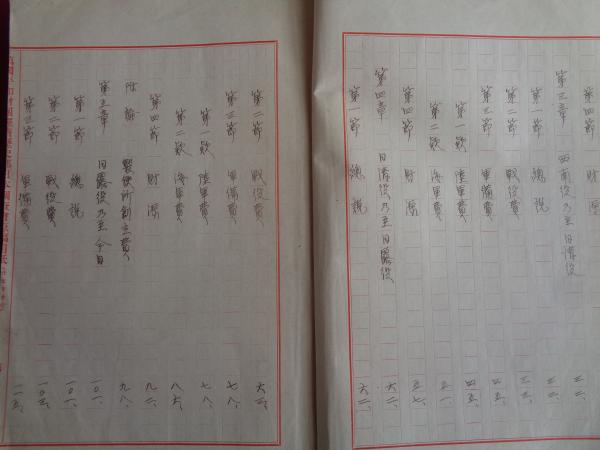 第四節
第三章 西南役乃至日清役 三二、
第一節 總説 三二、
第二節 戦役費 三三、
第三節 軍備費 四五、
第一款 陸軍費 四五、
第二款 海軍費 五一、
第四節 財源 五七、
第四章 日清役乃至日露役 六二、
第一節 總説 六二、
第二節 戦役費 六三、
第三節 軍備費 七八、
第一款 陸軍費 七八、
第二款 海軍費 八六、
第四節 財源 九二、
附論 製鉄所創立費 九八、
第五章 日露役乃至今日 一〇一、
第一節 總説 一〇一、
第二節 戦役費 一〇三、
第三節 軍備費 一一五、